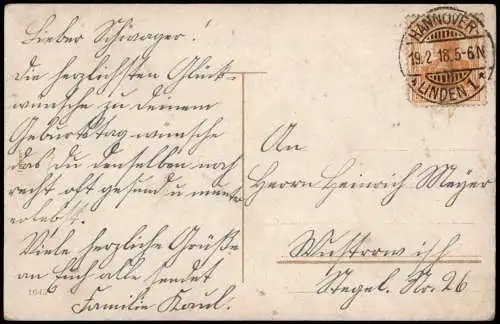 Lieber Schwager!
Die herzlichsten Glück-
wünsche zu deinem
Geburtstag wünsche
das Du denselben noch
recht oft gesund u munter
erlebst.
Viele herzliche Grüße
an Euch alle sendet
Familie Kaul.
1643
HANNOVER
19.2.18.5-6N
* LINDEN 1 *
An
Herrn Heinrich Meyer
Wustrow
Stegel. No. 26